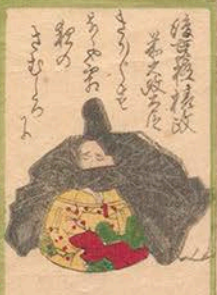 後京極摂政
前太政大臣
きり〳〵す
なくや霜
夜の
さむしろ
に